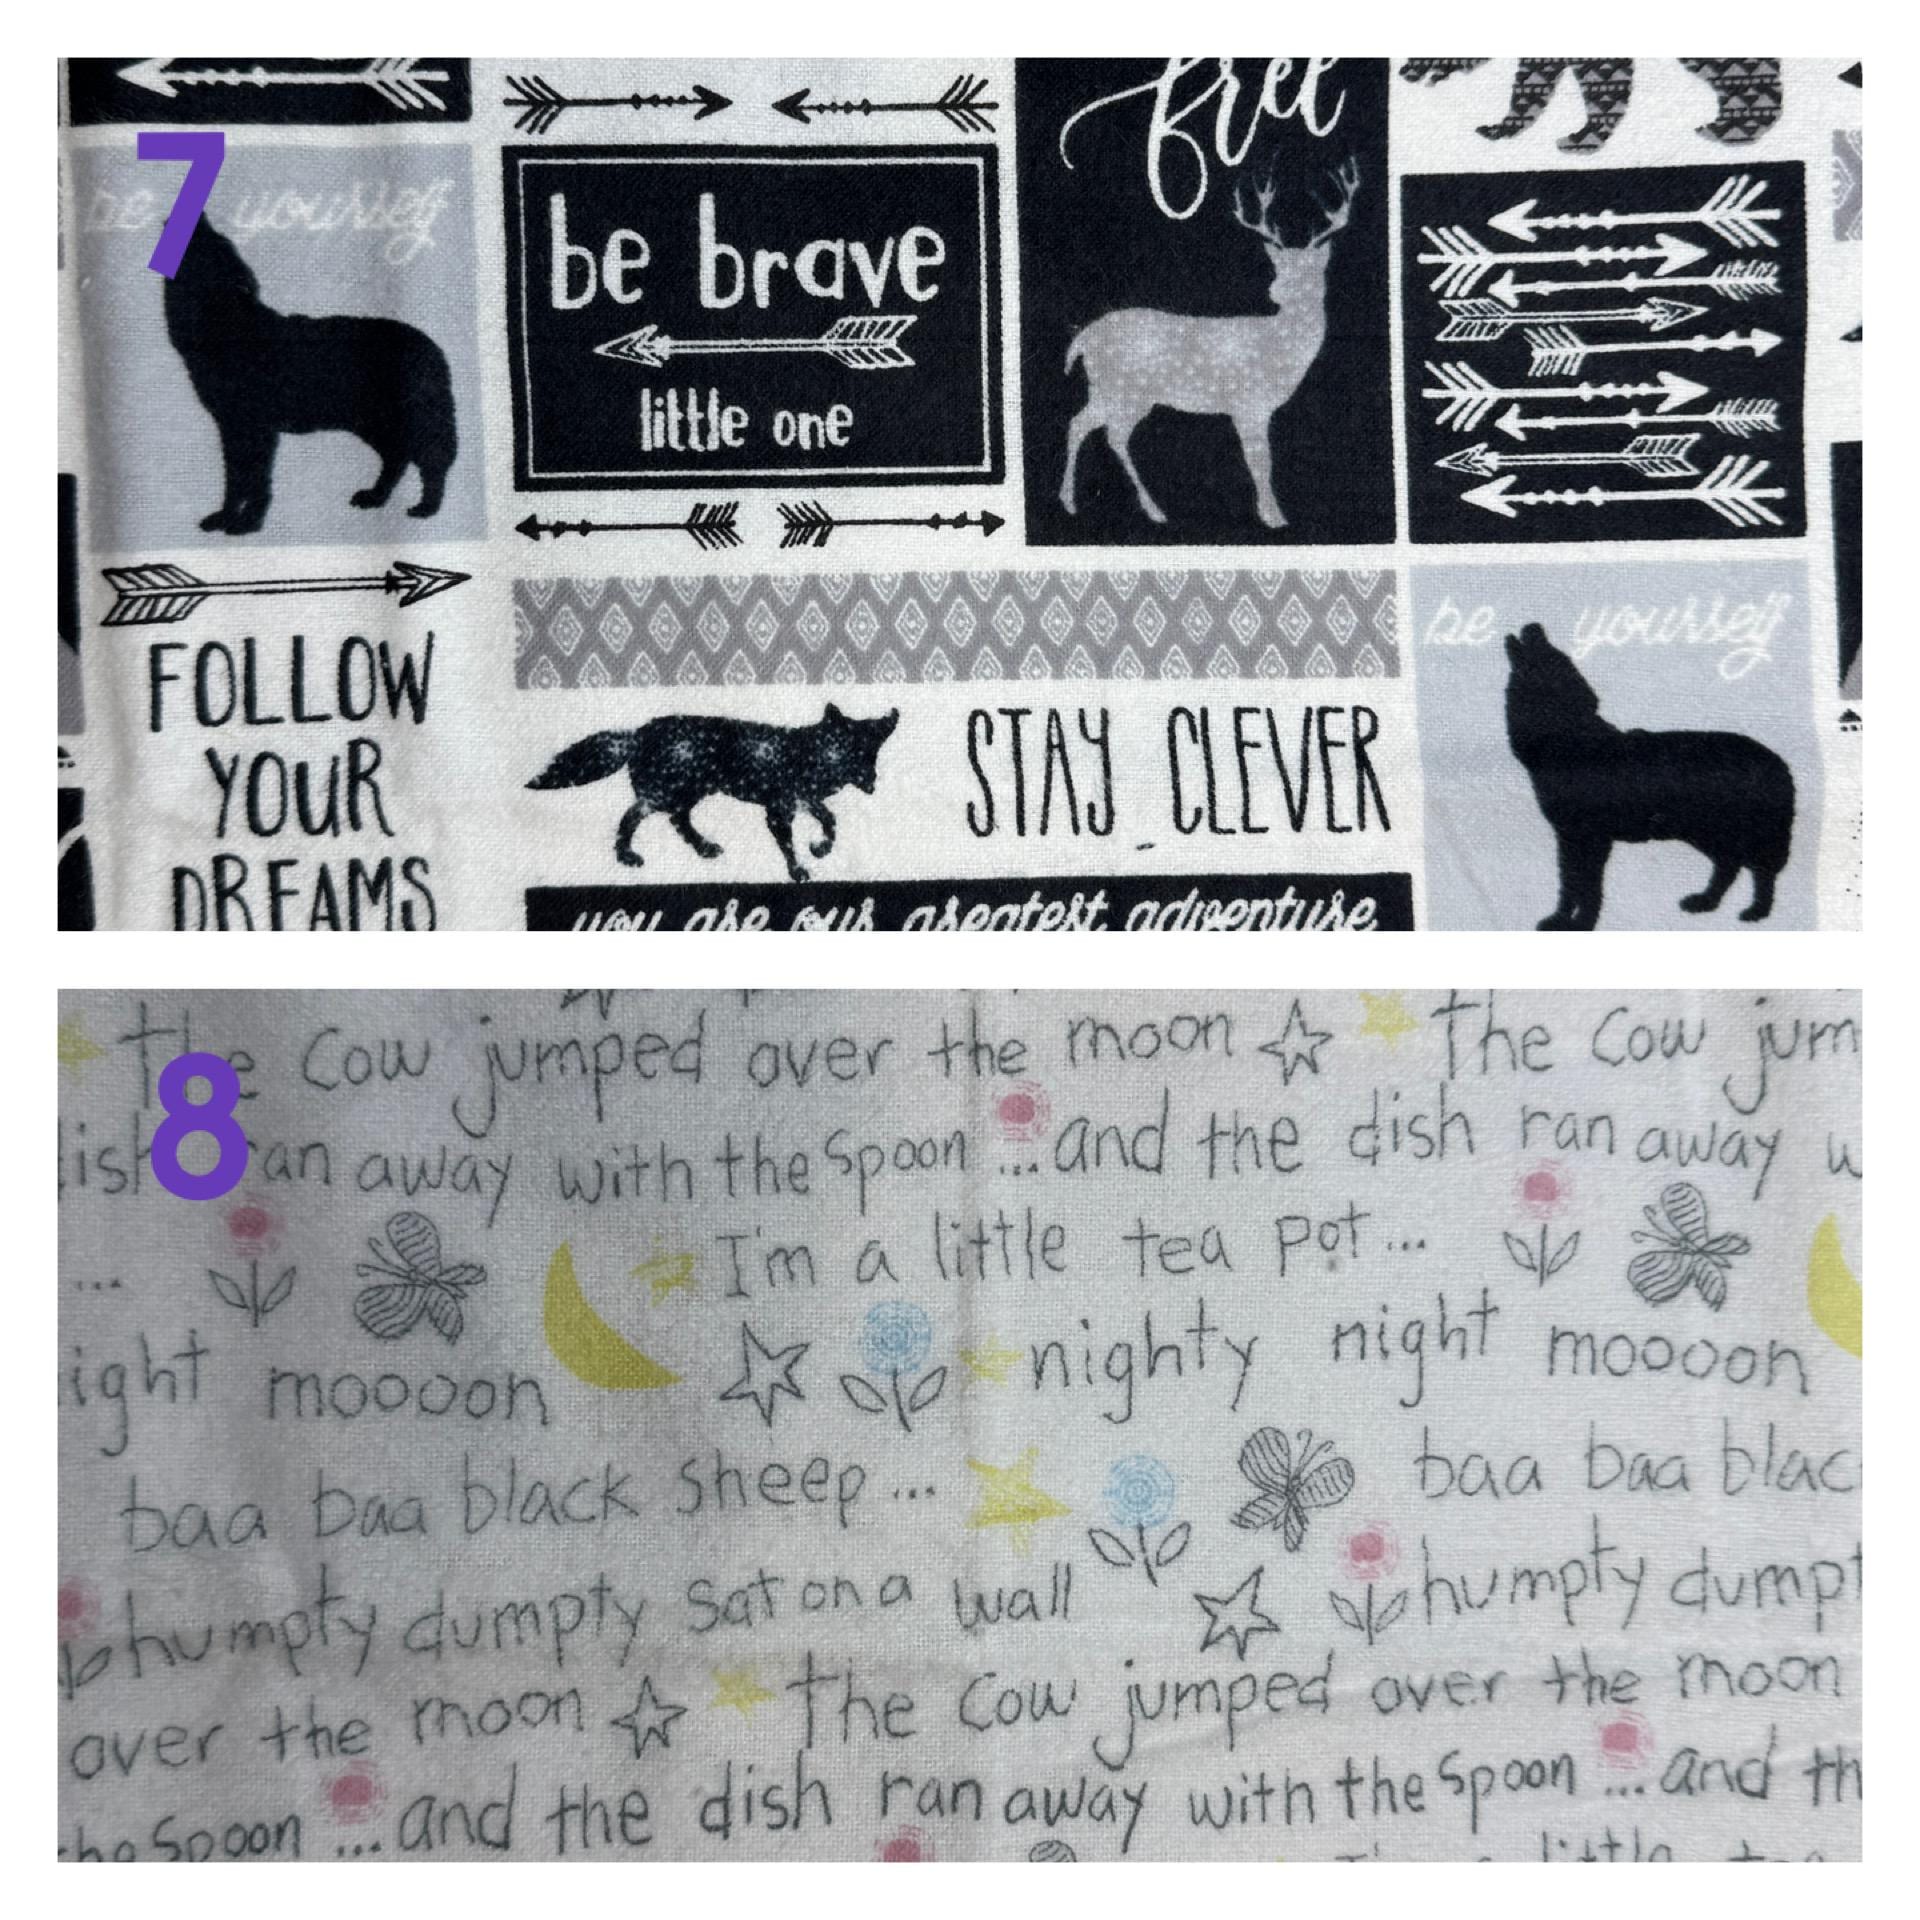 7
free
be yourself
be brave
little one
FOLLOW
YOUR
DREAMS
STAY CLEVER
be yourself
you are our greatest adventure
8
The Cow jumped over the moon The Cow jum
dish ran away with the spoon ...and the dish ran away w
... I'm a little tea pot...
ight moooon nighty night moooon
baa baa black sheep... baa baa blac
humpty dumpty sat on a wall humpty dumpt
over the moon The Cow jumped over the moon
the spoon ...and the dish ran away with the spoon ...and th